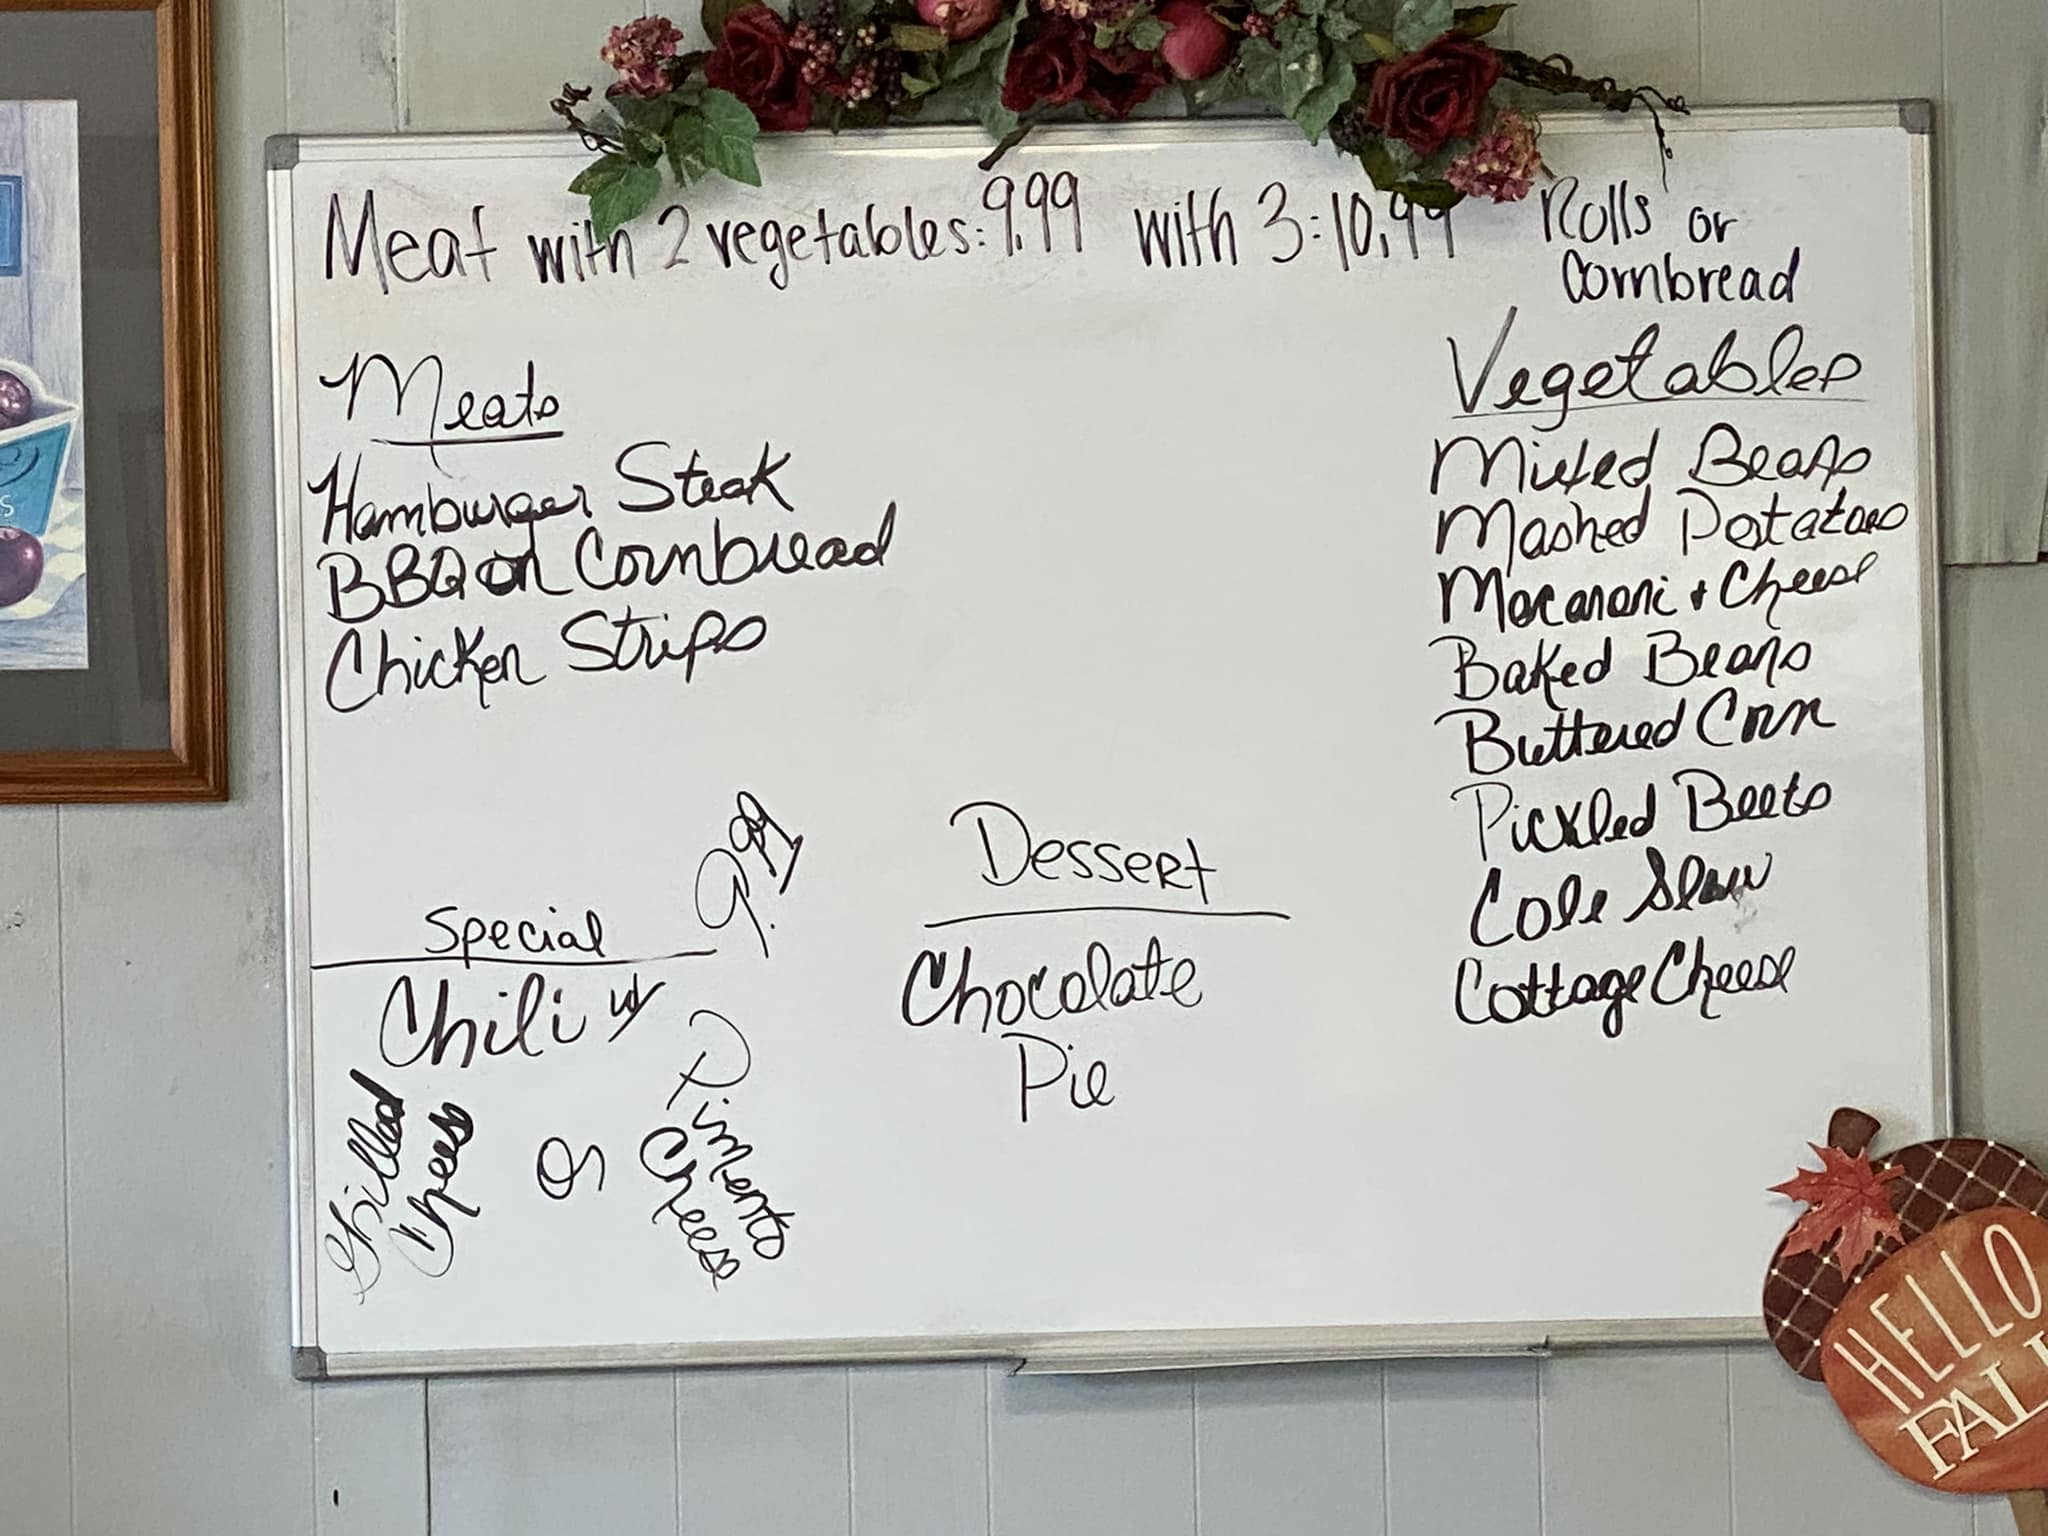 Meat with 2 vegetables: 9.99 with 3: 10.99 Rolls or
cornbread
Meats
Hamburger Steak
BBQ on Cornbread
Chicken Strips
Vegetables
Mixed Beans
Mashed Potatoes
Macaroni + Cheese
Baked Beans
Buttered Corn
Pickled Beets
Cole Slaw
Cottage Cheese
Special 9.99
Chili w/
Grilled
Cheese
Or
Pimento
Cheese
Dessert
Chocolate
Pie
HELLO
FALL